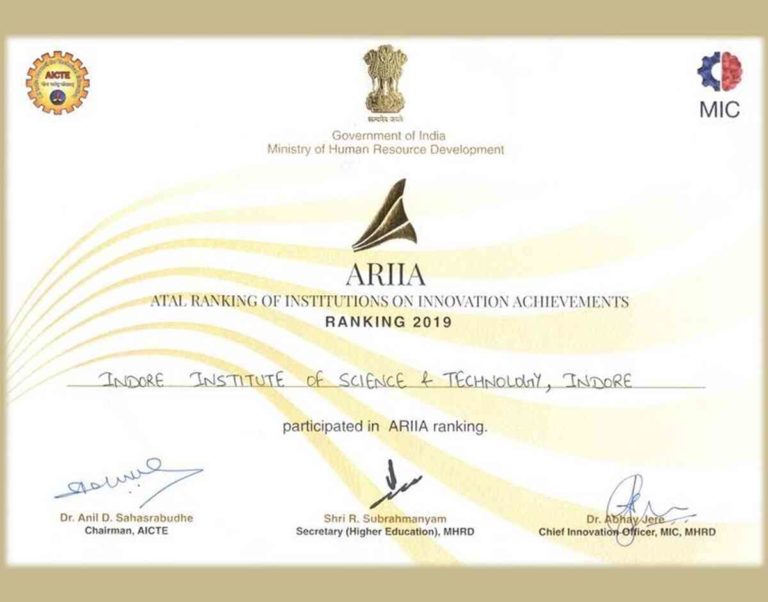 AICTE
MIC
सत्यमेव जयते
Government of India
Ministry of Human Resource Development
ARIIA
ATAL RANKING OF INSTITUTIONS ON INNOVATION ACHIEVEMENTS
RANKING 2019
INDORE INSTITUTE OF SCIENCE & TECHNOLOGY, INDORE
participated in ARIIA ranking.
Dr. Anil D. Sahasrabudhe
Chairman, AICTE
Shri R. Subrahmanyam
Secretary (Higher Education), MHRD
Dr. Abhay Jere
Chief Innovation Officer, MIC, MHRD